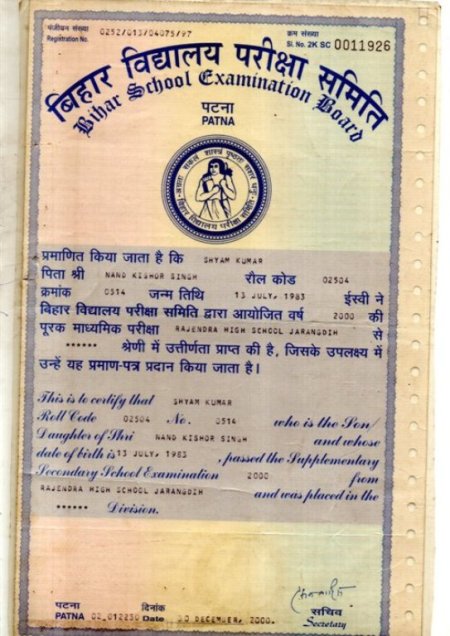 पंजीयन संख्या 0252/013/04075/97
Registration No.
क्रम संख्या
Sl. No. 2K SC 0011926
बिहार विद्यालय परीक्षा समिति
Bihar School Examination Board
पटना
PATNA
बिहार विद्यालय परीक्षा समिति
प्रमाणित किया जाता है कि SHYAM KUMAR
पिता श्री NAND KISHOR SINGH रौल कोड 02504
क्रमांक 0514 जन्म तिथि 13 JULY, 1983 ईस्वी ने
बिहार विद्यालय परीक्षा समिति द्वारा आयोजित वर्ष 2000 की
पूरक माध्यमिक परीक्षा RAJENDRA HIGH SCHOOL JARANGDIH से
****** श्रेणी में उत्तीर्णता प्राप्त की है, जिसके उपलक्ष्य में
उन्हें यह प्रमाण-पत्र प्रदान किया जाता है।
This is to certify that SHYAM KUMAR
Roll Code 02504 No. 0514 who is the Son/
Daughter of Shri NAND KISHOR SINGH and whose
date of birth is 13 JULY, 1983 , passed the Supplementary
Secondary School Examination 2000 from
RAJENDRA HIGH SCHOOL JARANGDIH and was placed in the
****** Division.
पटना दिनांक सचिव
PATNA 02 012230 Date 20 DECEMBER, 2000. Secretary